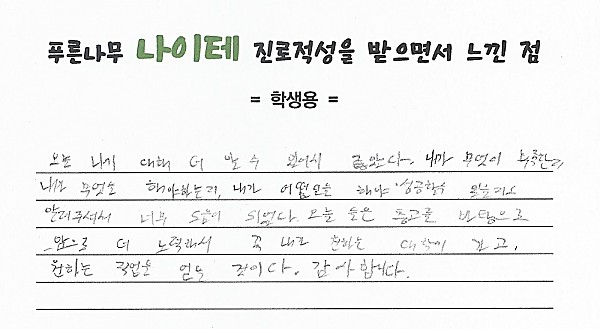 푸른나무 나이테 진로적성을 받으면서 느낀 점
= 학생용 =
오늘 나에 대해 더 알 수 있어서 좋았다. 내가 무엇이 부족한지,
내가 무엇을 해야하는지, 내가 어떤일을 해야 성공할지
알려주셔서 너무 도움이 되었다. 오늘 들은 충고를 바탕으로
앞으로 더 노력해서 꼭 내가 원하는 대학에 가고,
원하는 직업을 얻을 것이다. 감사합니다.